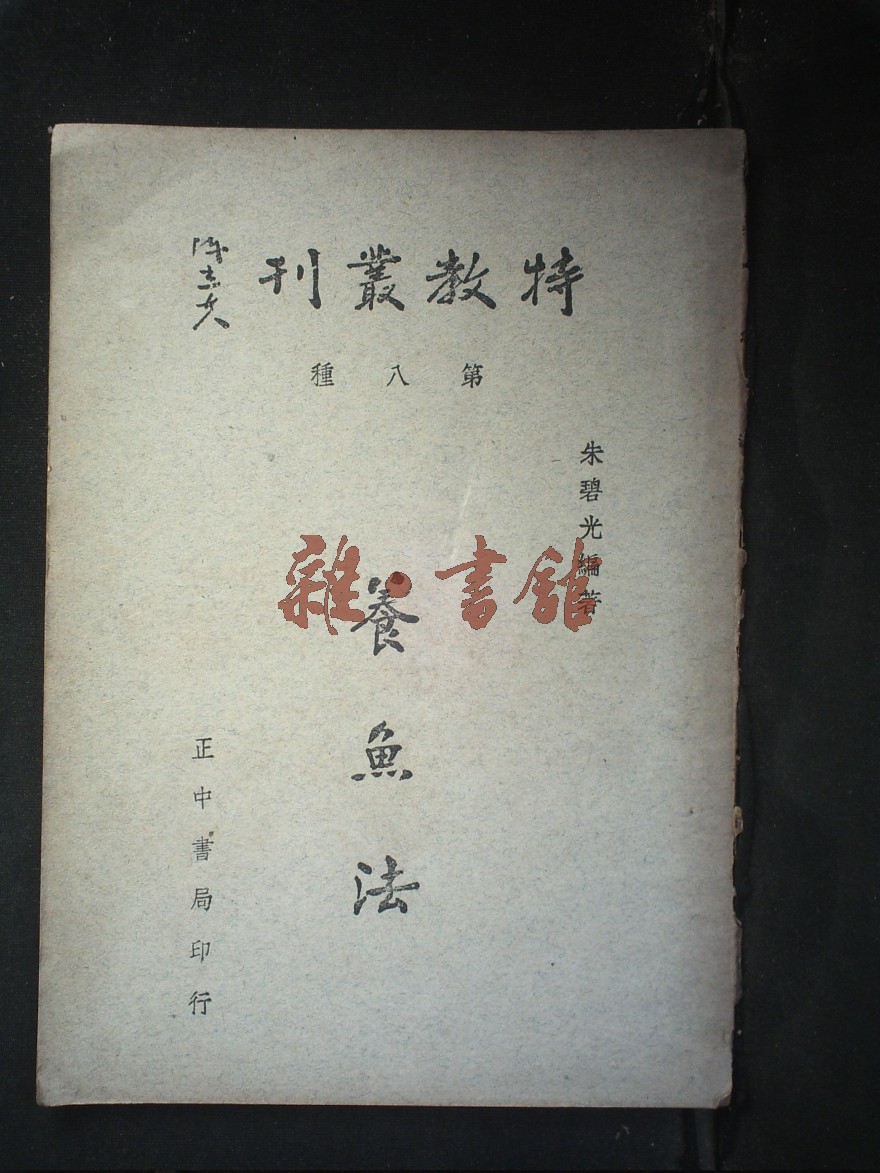 特教叢刊
第八種
朱碧光編著
養魚法
正中書局印行
雜·書館